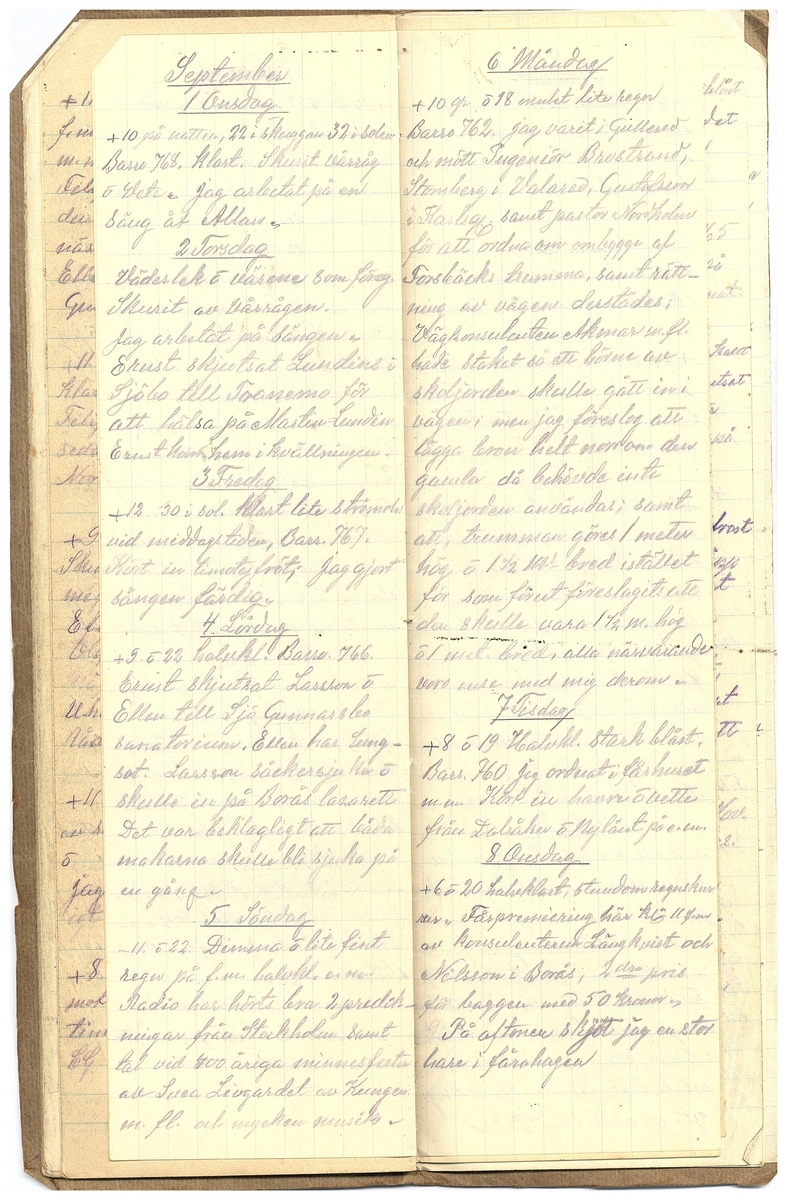 September
1 Onsdag
+10 på natten, 22 i skuggan 32 i solen
Barro 768. klart. Skurit vårråg
ö Vete. Jag arbetat på en
säng åt Allan.
2 Torsdag
Väderlek ö värene som föreg
Skurit av Vårrågen.
Jag arbetat på sängen.
Ernst skjutsat Lundins i
Sjöbo till Tranemo för
att hälsa på Martin Lundin
Ernst kom hem i kvällningen.
3 Fredag
+12. 30 i sol. klart lite strömoln
vid middagstiden, Barr. 767.
Kört in timotejfröt; Jag gjort
sängen färdig.
4. Lördag
+9 ö 22 halvkl. Barro. 766.
Ernst skjutsat Larsson ö
Ellen till Sjö Gunnarsbo
sanatorium. Ellen har Lung-
sot. Larsson Sockersjuka ö
skulle in på Borås lazarett
Det var beklagligt att båda
makarna skulle bli sjuka på
en gång.
5 Söndag
11. ö 22 Dimma ö lite fint
regn på f.m. halvkl. e.m.
Radio har hörts bra 2 predik-
ningar från Stockholm samt
tal vid 400 åriga minnesfesten
av Svea Livgardet av Kungen
m. fl. och mycken musik.
6 Måndag
+10 gr. ö 18 mulet lite regn
Barro 762. jag varit i Gullered
och mött Ingeniör Brostrand,
Stomberg i Valared, Gustafsson
i samt pastor Nordholm
för att ordna om ombygge af
Torsbäcks trumma, samt rätt-
ning av vägen derstädes;
Vägkonsulenten Akmar m.fl.
hade stakat så att hörne av
skoljorden skulle gått in i
vägen; men jag föreslog att
lägga bron helt norr om den
gamla då behövde inte
skoljorden användas; samt
att, trumman göres 1 meter
hög ö 1 1/2 Mt bred istället
för som förut föreslagits att
den skulle vara 1 1/2 m. hög
ö 1 met. bred, alla närvarande
voro ense med mig derom.
7 Tisdag
+8 ö 19 Halvkl. Stark blåst.
Barr. 760 Jag ordnat i fårhuset
m.m. Kört in havre ö vette
från Dalåker ö Nylänt på e.m.
8 Onsdag
+6 ö 20 halvklart, stundom regnsku-
rar. Fårpremiering här kl 11 f.m.
av konsulenterna Långkvist och
Nilsson i Borås, 2dra pris
för baggen med 50 kronor.
På aftonen skjöt jag en stor
hare i fårahagen